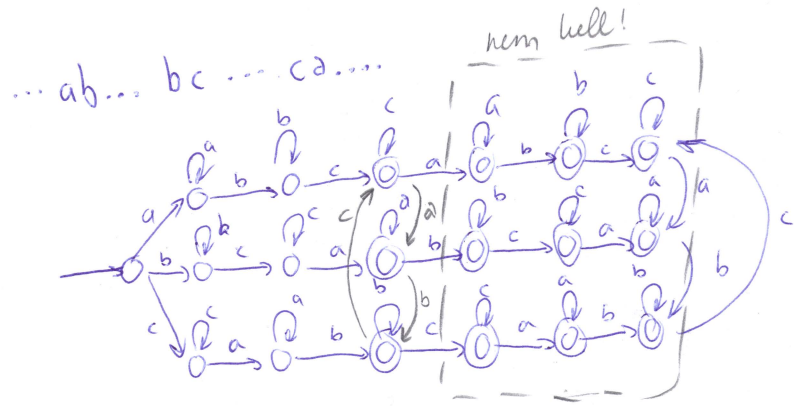 nem kell!
... ab... bc .... ca....
a b c a b c
a b c a b c a
b c a b c a
c a c
b c a b c a b
c a b c a b
b
c a b c a b